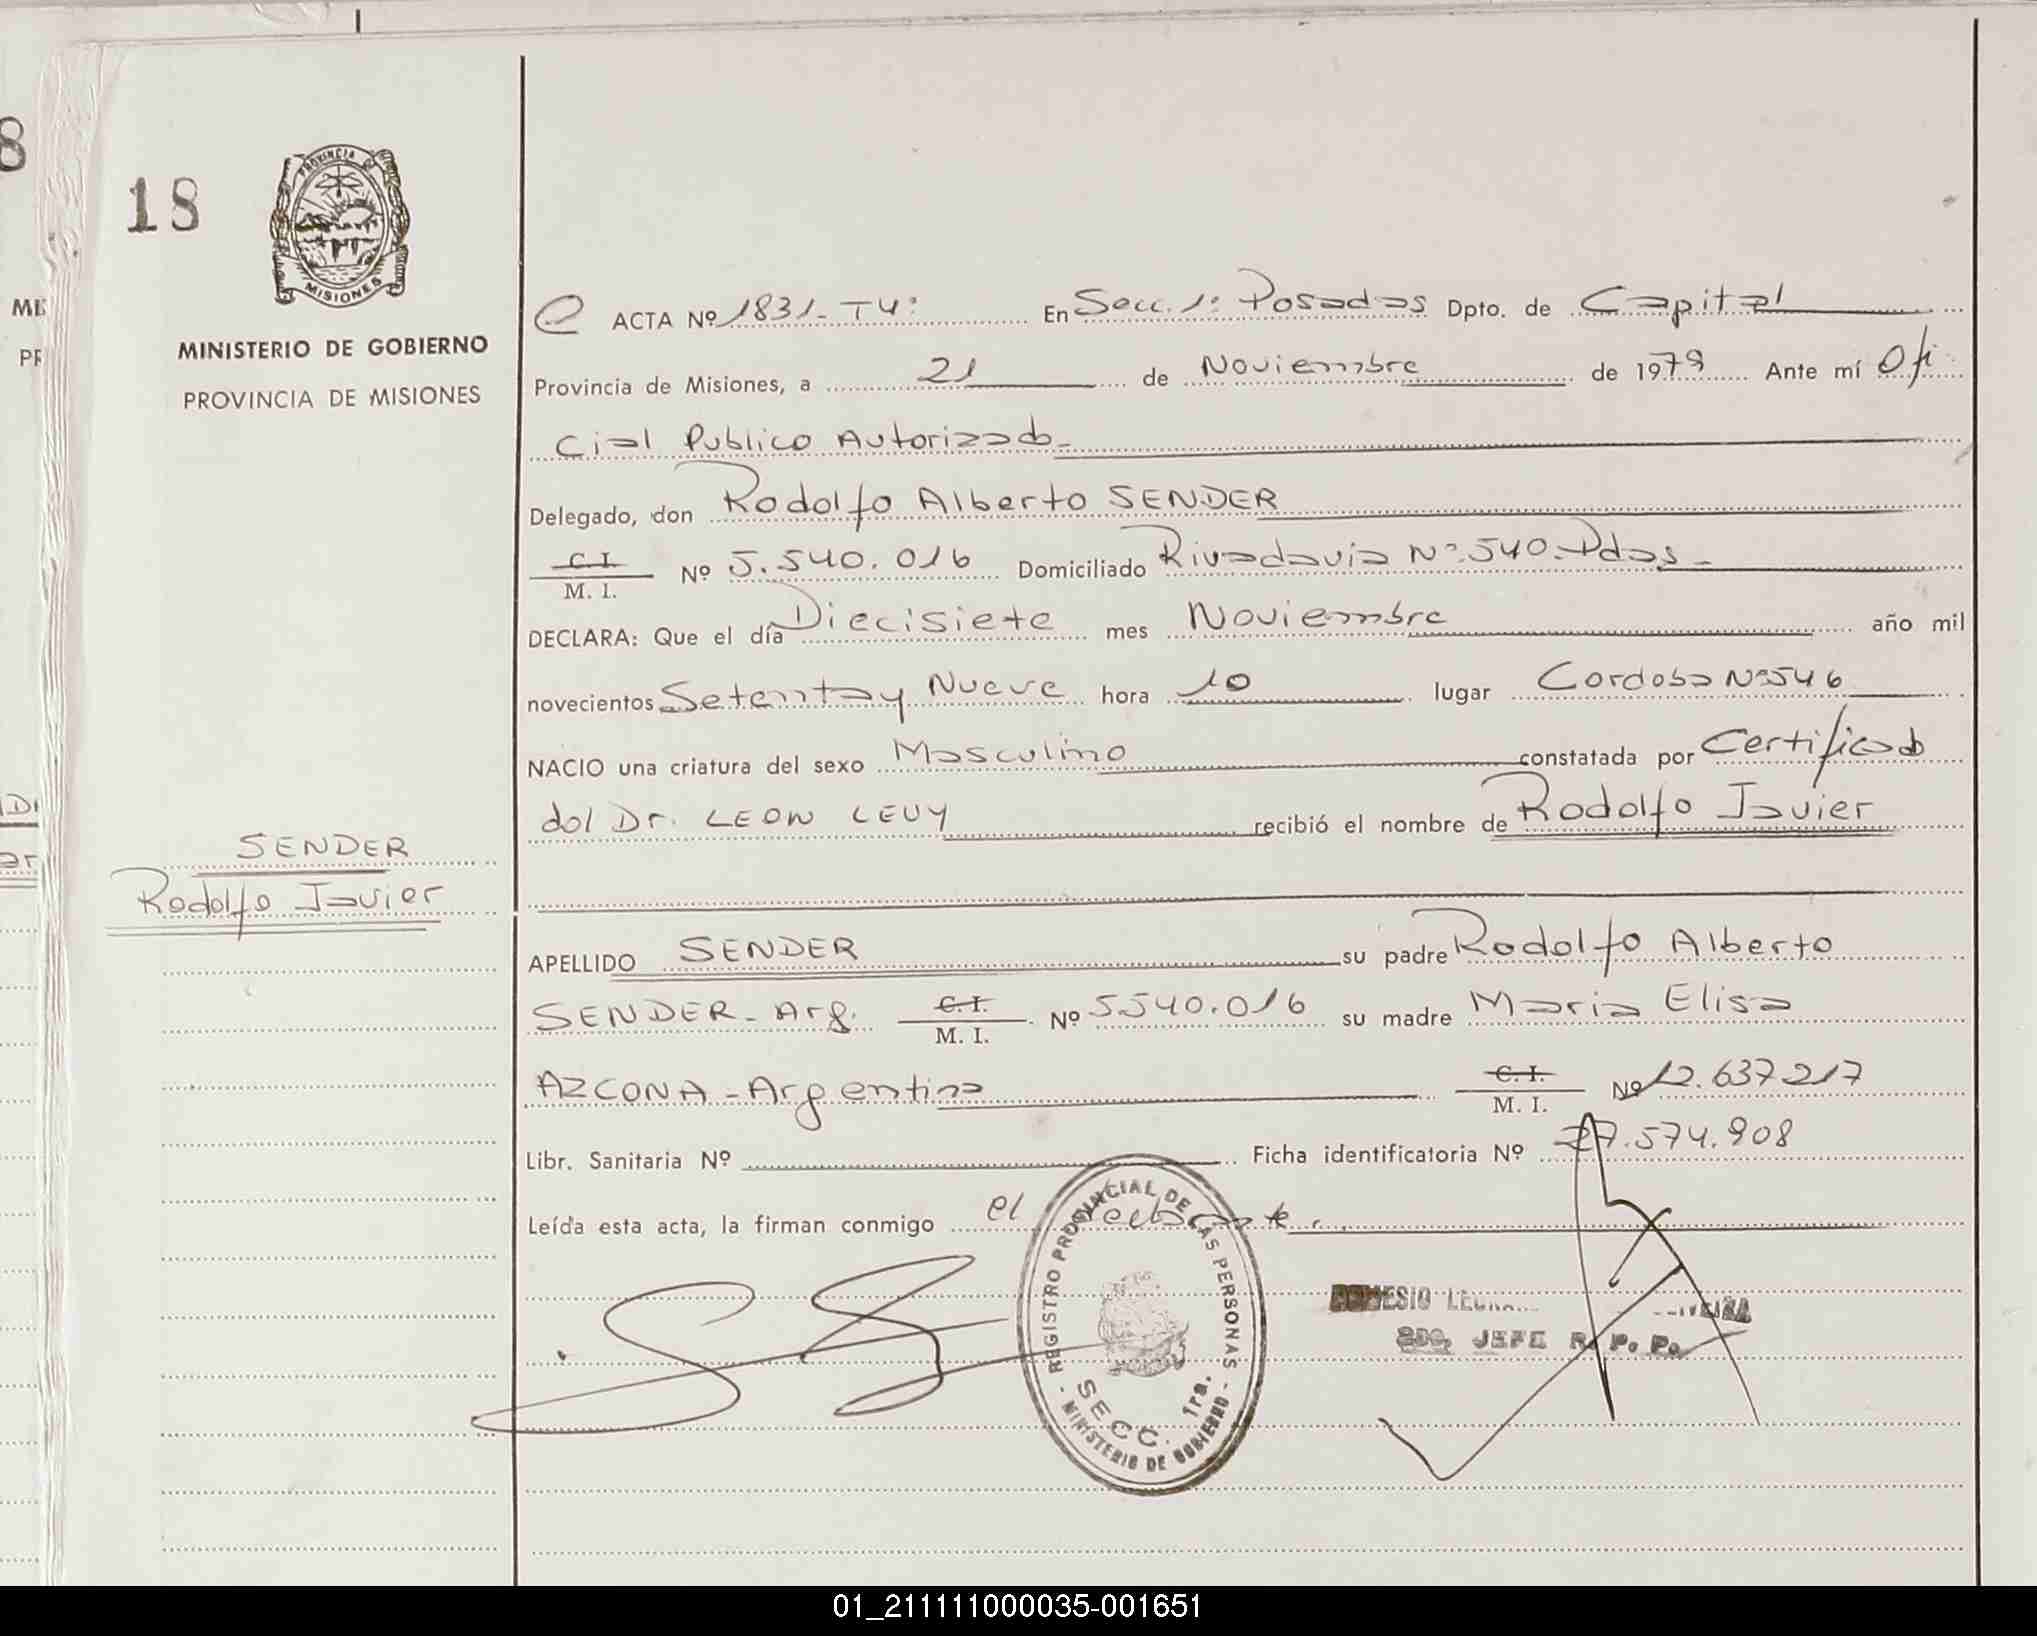 8
18
PROVINCIA DE
MISIONES
MINISTERIO DE GOBIERNO
PROVINCIA DE MISIONES
SENDER
Rodolfo Javier
ACTA Nº 1831- T4º En Secc. 1º Posadas Dpto. de Capital
Provincia de Misiones, a 21 de Noviembre de 1979 Ante mí Ofi
cial Publico Autorizado-
Delegado, don Rodolfo Alberto SENDER
C. I.
M. I. Nº 5.540.016 Domiciliado Rivadavia Nº 540-Pdas-
DECLARA: Que el día Diecisiete mes Noviembre año mil
novecientos Setenta y Nueve hora 10 lugar Cordoba Nº 546
NACIO una criatura del sexo Masculino constatada por Certificado
del Dr. LEON LEVY recibió el nombre de Rodolfo Javier
APELLIDO SENDER su padre Rodolfo Alberto
SENDER- Arg. C. I.
M. I. Nº 5.540.016 su madre Maria Elisa
AZCONA - Argentina C. I.
M. I. Nº 12.637.217
Libr. Sanitaria Nº Ficha identificatoria Nº 27.574.908
Leída esta acta, la firman conmigo el
REGISTRO PROVINCIAL DE LAS PERSONAS
SECC. 1ra.
- MINISTERIO DE GOBIERNO -
2DO. JEFE R. P. P.
01_211111000035-001651